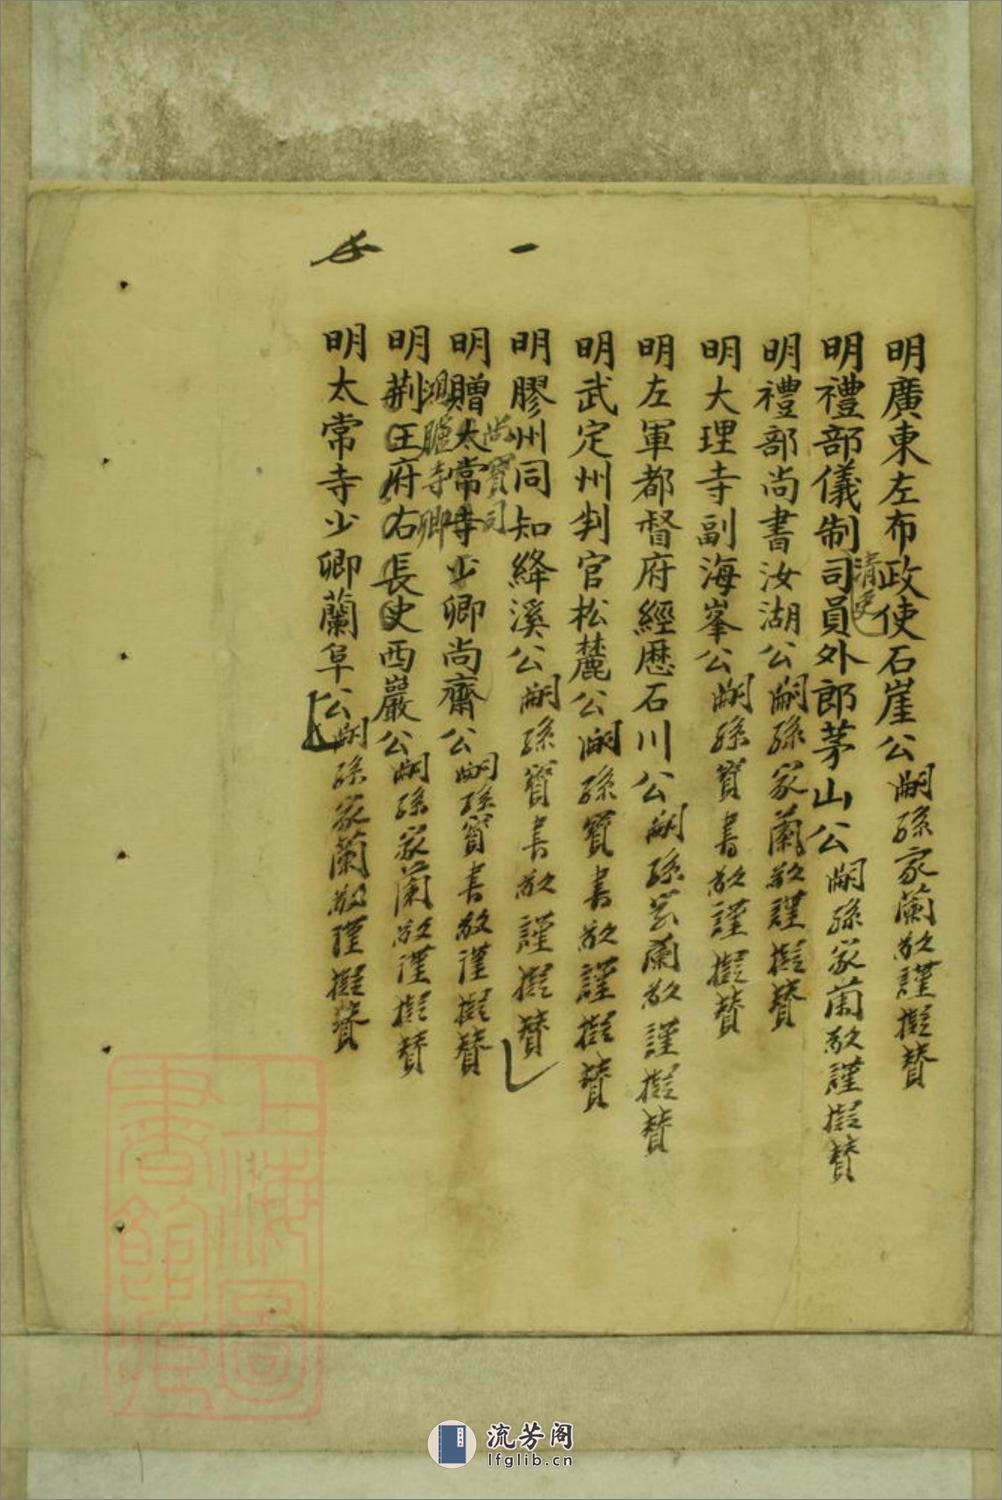 明廣東左布政使石崖公嗣孫家蘭敬謹擬贊
明禮部儀制清吏司員外郎茅山公嗣孫家蘭敬謹擬贊
明禮部尚書汝湖公嗣孫家蘭敬謹擬贊
明大理寺副海峯公嗣孫寶書敬謹擬贊
明左軍都督府經歷石川公嗣孫芸蘭敬謹擬贊
明武定州判官松麓公嗣孫寶書敬謹擬贊
一
明膠州同知絳溪公嗣孫寶書敬謹擬贊
尚寶司
明贈太常寺少卿尚齋公嗣孫寶書敬謹擬贊
鴻臚寺卿
明荆王府右長史西巖公嗣孫家蘭敬謹擬贊
明太常寺少卿蘭阜公嗣孫家蘭敬謹擬贊
上海圖
書館藏
流芳阁
lfglib.cn